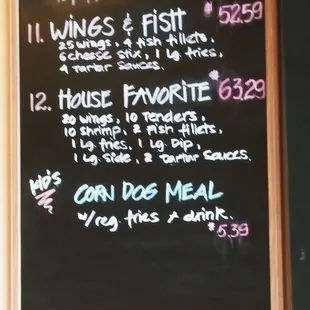 11. WINGS & FISH $52.59
25 wings, 4 fish fillets,
6 cheese stix, 1 Lg. fries,
4 Tartar Sauces.
12. HOUSE FAVORITE $63.29
20 wings, 10 Tenders,
10 shrimp, 2 Fish fillets,
1 Lg. fries, 1 Lg. Dip,
1 Lg. Side, 2 Tartar Sauces.
KID'S
CORN DOG MEAL
w/ reg. fries + drink.
$5.39